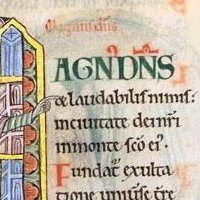 AGNDNS
de laudabilis nimis:
inciuitate dei nri
inmonte sco ei.
Fundat exulta
tione uniuse tre